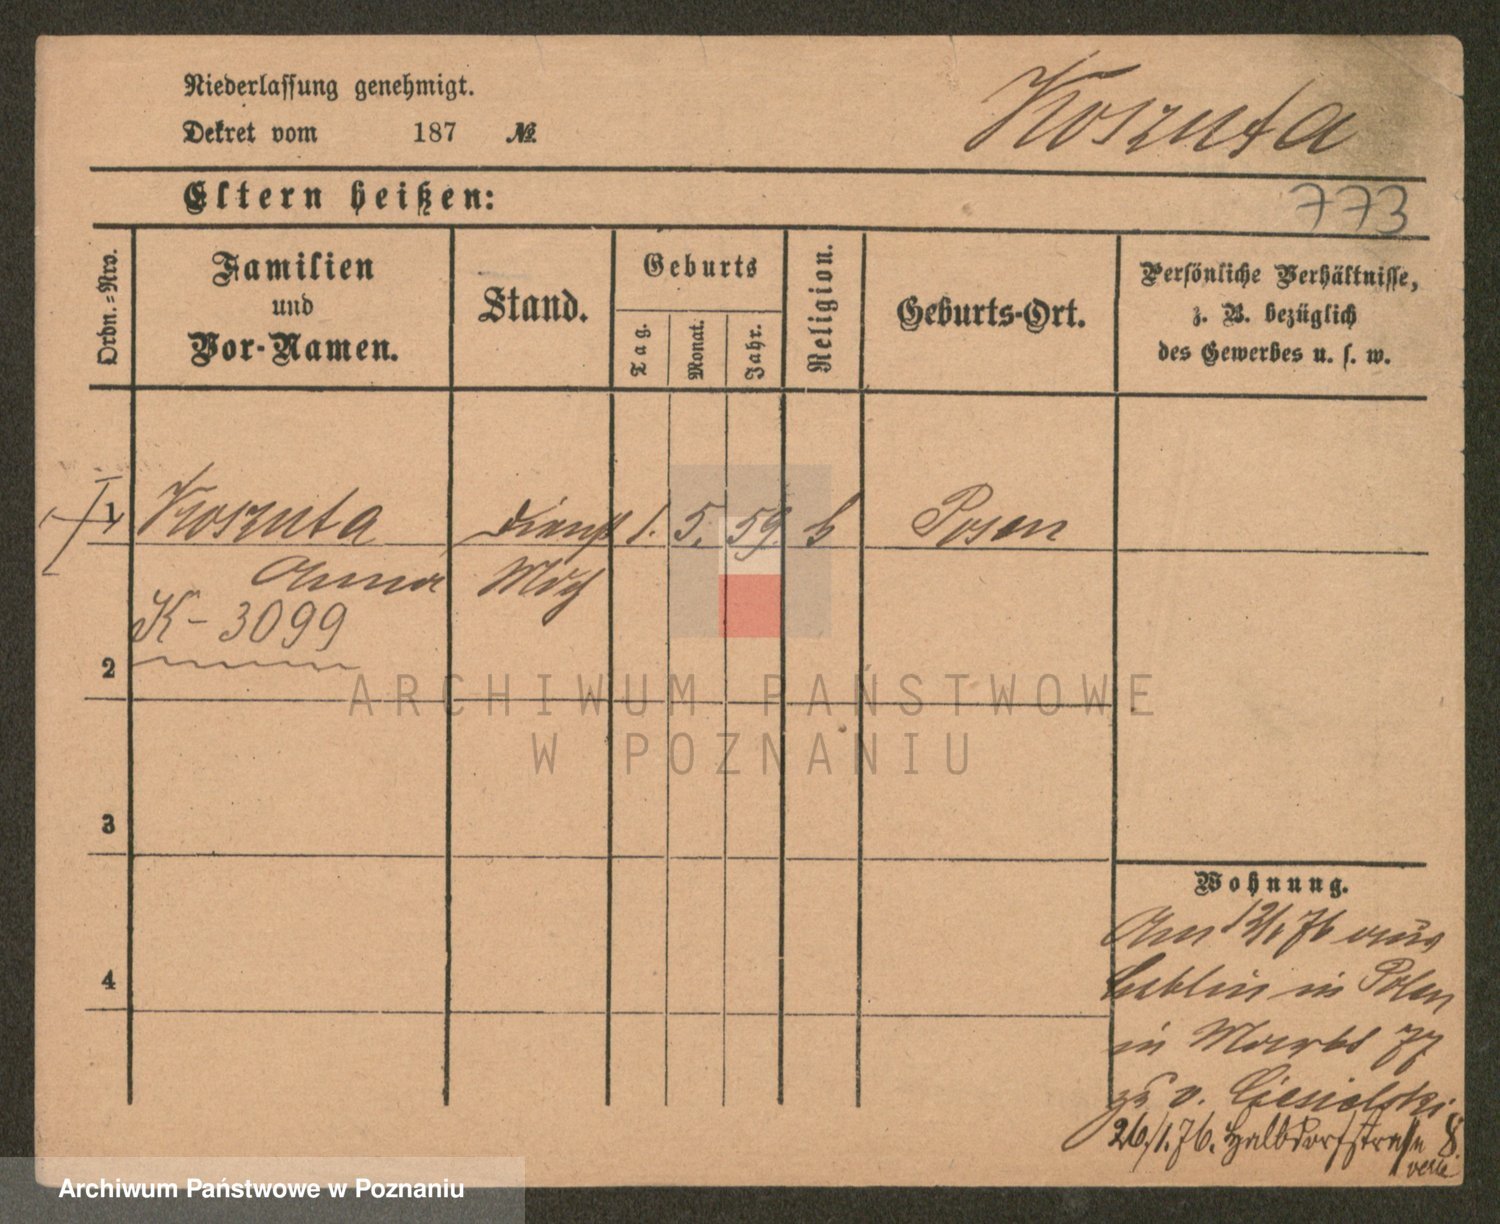 Niederlassung genehmigt.
Dekret vom 187 №
Koszuta
Eltern heißen:
773
Ordn.=Nro.
Familien
und
Vor-Namen.
Stand.
Geburts
Tag.
Monat.
Jahr.
Religion.
Geburts-Ort.
Persönliche Verhältnisse,
z. B. bezüglich
des Gewerbes u. s. w.
1 Koszuta Dienst 1. 5. 59. Posen
Anna
K - 3099
2
3
4
ARCHIWUM PAŃSTWOWE
W POZNANIU
Wohnung.
Am 12/1 76 aus
Lublin in Polen
in Markt 77
zu v. Ciesielski
26./1.76. Halbdorfstraße 8.
Archiwum Państwowe w Poznaniu